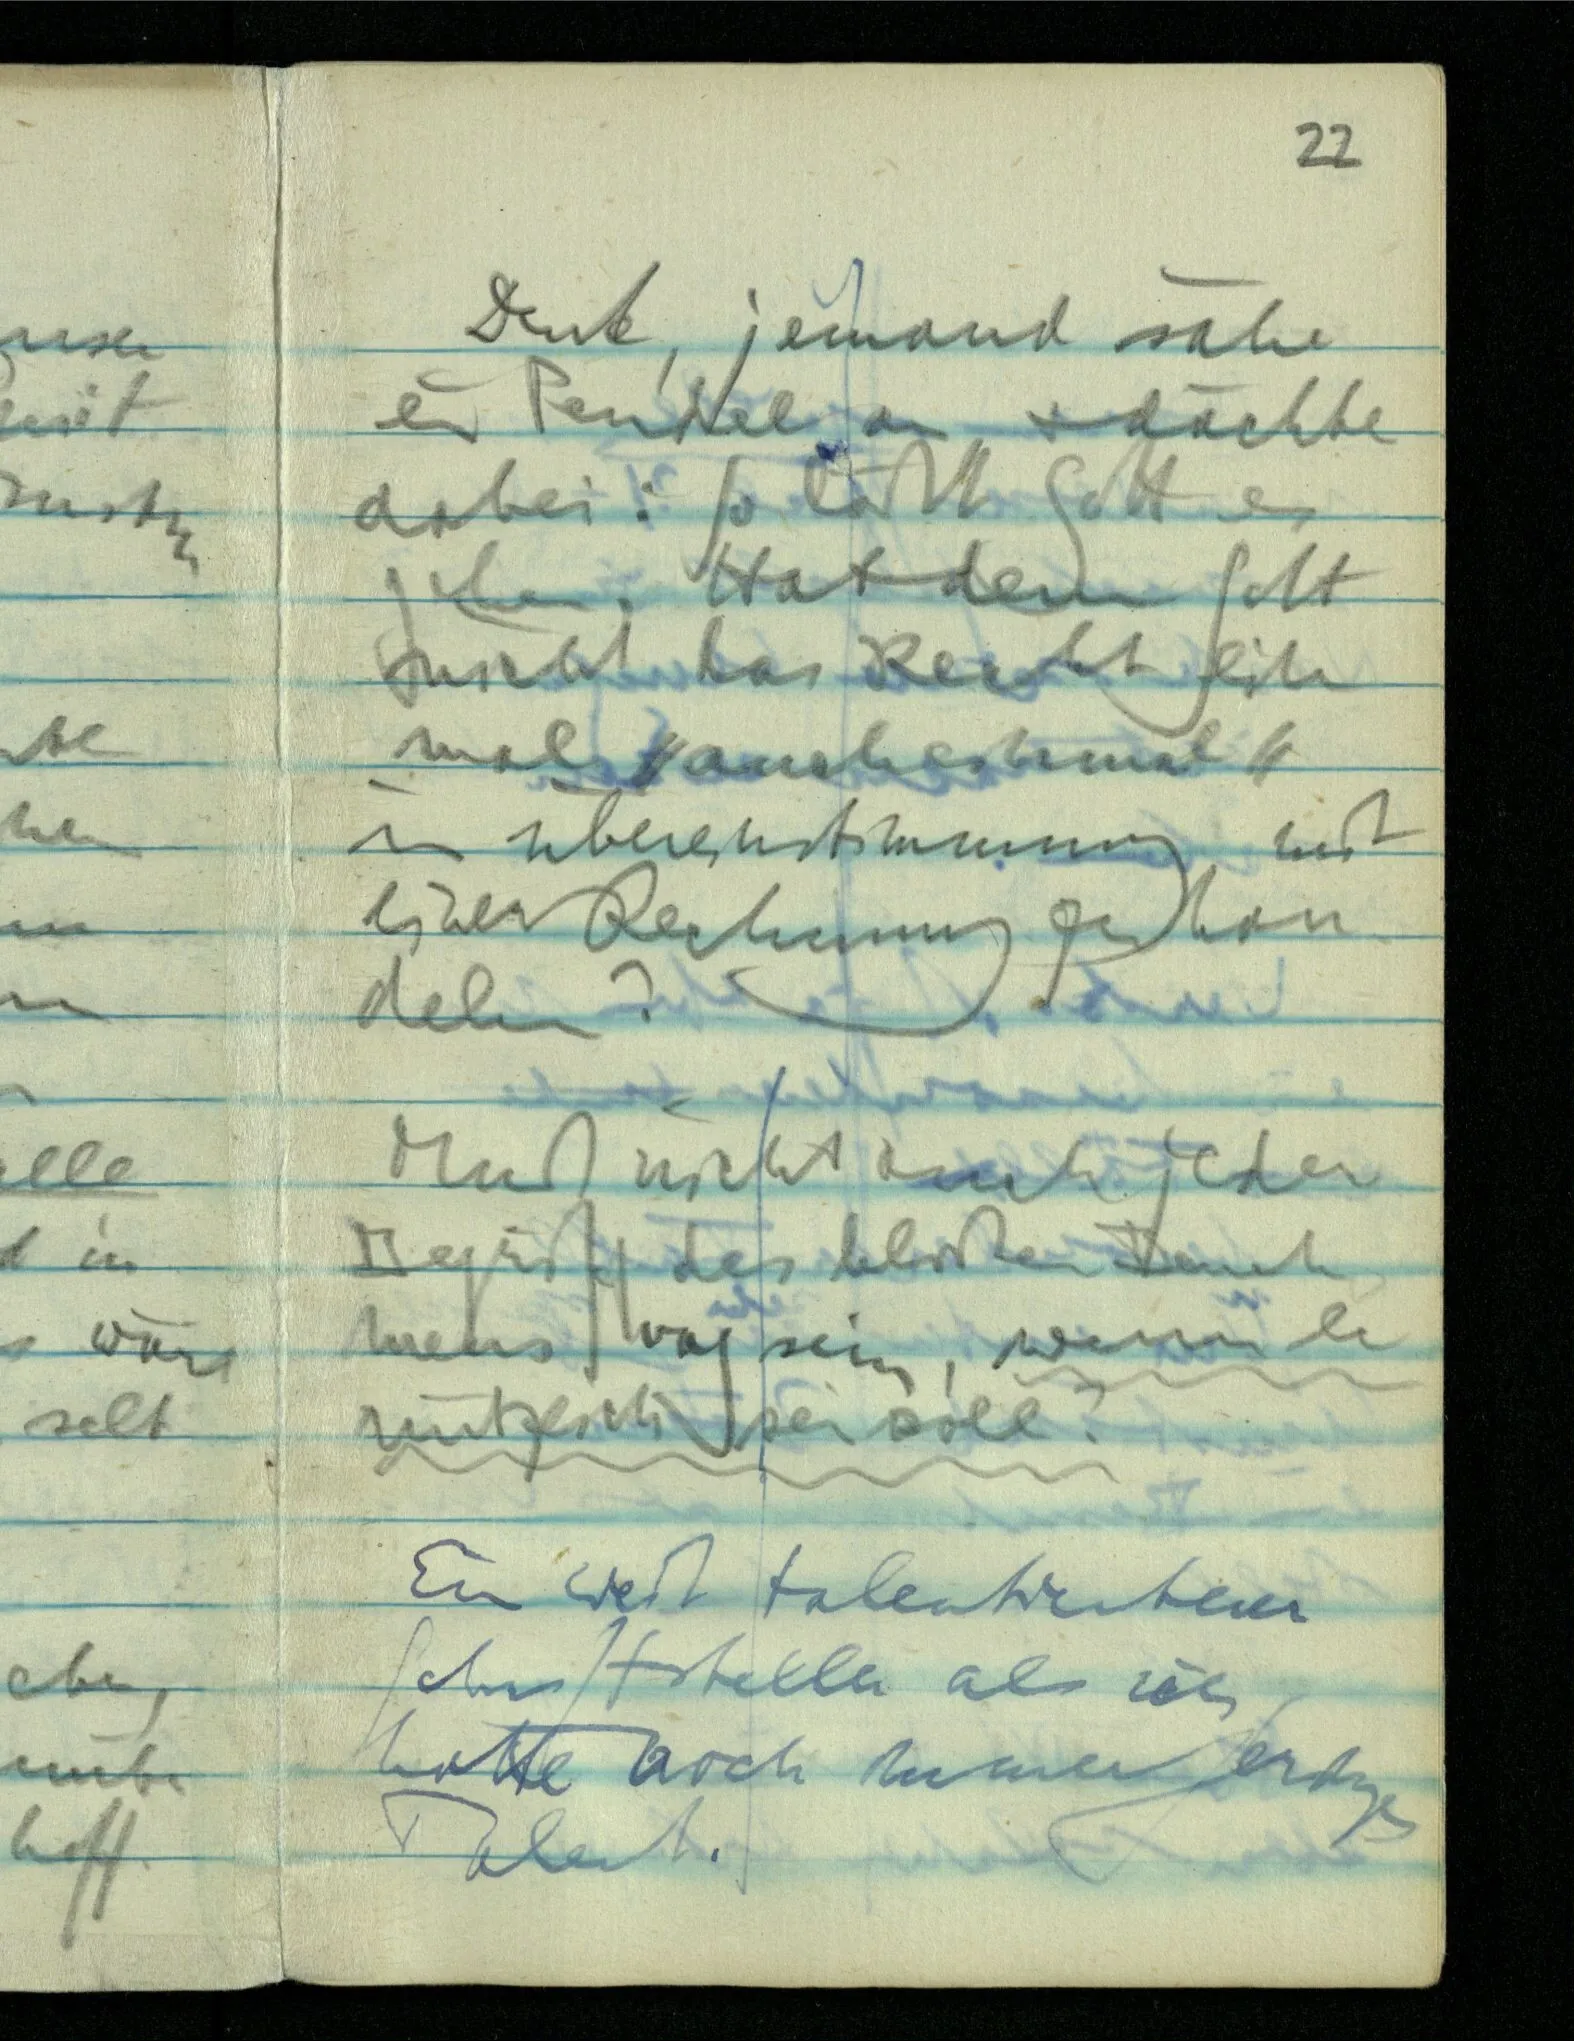 22
Denk, jemand sähe
ein Pendel an & dächte
dabei: so läßt Gott es
gehen. Hat denn Gott
nicht das Recht ein-
mal auch einmal
in Übereinstimmung mit
einer Rechnung zu han-
deln?
Muß nicht auch jeder
Begriff des bloßen
vag sein, wenn er
nützlich sein soll?
Ein weit talentierterer
Schriftsteller als ich,
hätte noch immer geringes
Talent.
elle
d in
wäre
selt
hoff.